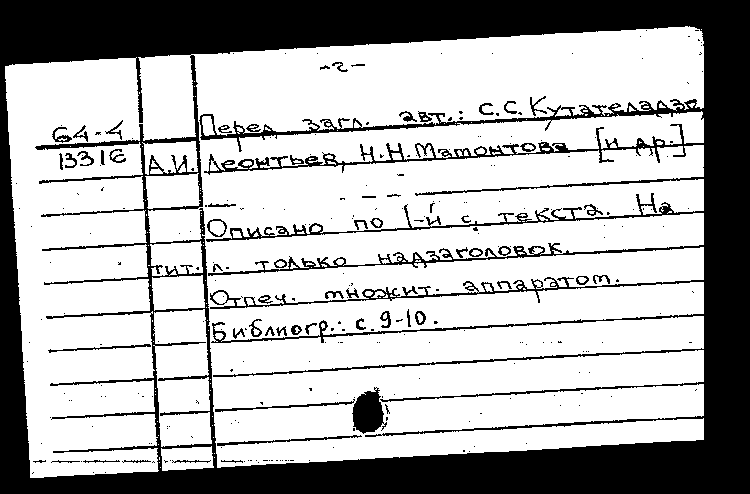 -2-
64-4 Перед загл. авт.: С.С. Кутателадзе,
13316 А.И. Леонтьев, Н.Н. Мамонтова [и др.]
Описано по 1-й с. текста. На
тит. л. только надзаголовок.
Отпеч. множит. аппаратом.
Библиогр.: с. 9-10.